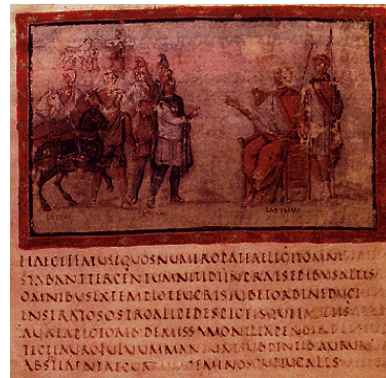 LATINUS
HAECEFFATUSEQUOSNUMEROPATERELIGITOMNI
STABANTTERCENTUMNITIDIINPRAESEPIBUSALTIS
OMNIBUSEXTEMPLOTEUCRISIUBETORDINEDUCI
INSTRATOSOSTROALIPEDESPICTISQUETAPETIS
AUREAPECTORIB·DEMISSAMONILIAPENDENT
TECTIAUROFULVUMMANDUNTSUBDENTIBAURUM
ABSENTIAENEAECURRUMGEMINOSQUEIUGALES